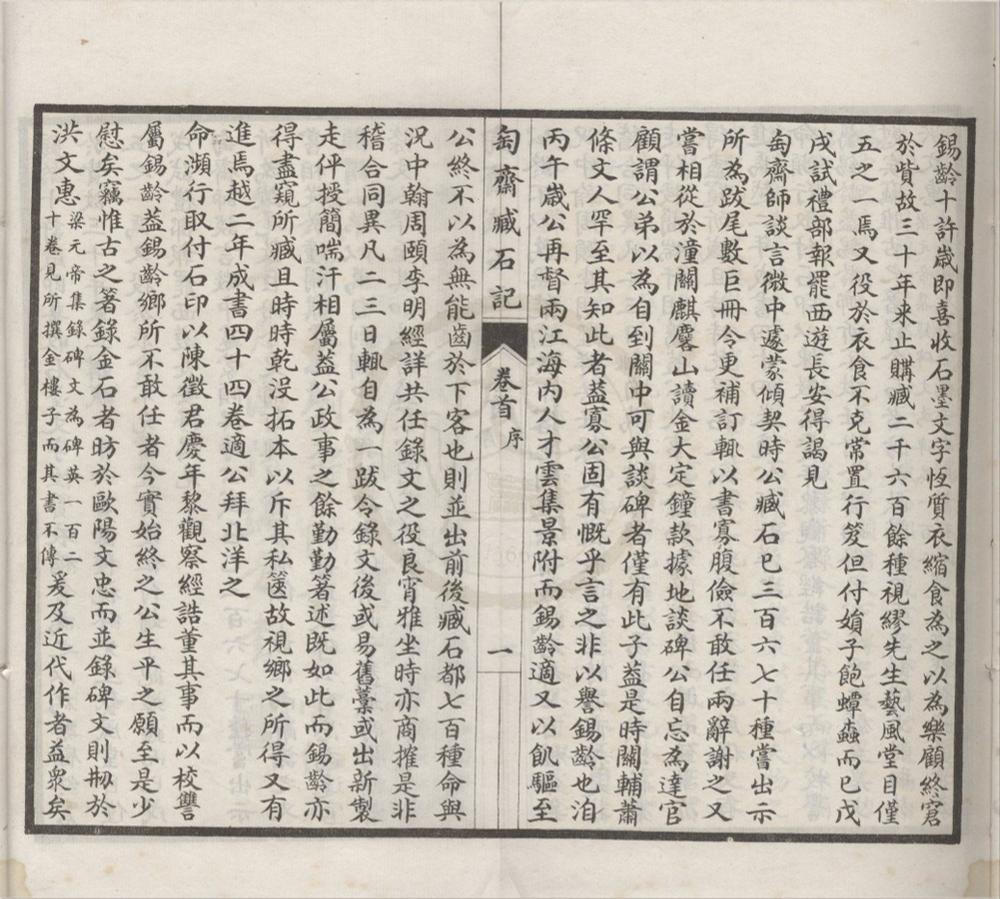 錫齡十許歲即喜收石墨文字恆質衣縮食為之以為樂顧終窘
於貲故三十年來止購臧二千六百餘種視繆先生藝風堂目僅
五之一焉又役於衣食不克常置行笈但付媍子飽蟫蟲而已戊
戌試禮部報罷西遊長安得謁見
匋齊師談言微中遽蒙傾契時公臧石已三百六七十種嘗出示
所為跋尾數巨冊令更補訂輒以書寡腹儉不敢任兩辭謝之又
嘗相從於潼關麒麐山讀金大定鐘款據地談碑公自忘為達官
顧謂公弟以為自到關中可與談碑者僅有此子葢是時關輔蕭
條文人罕至其知此者葢寡公固有慨乎言之非以譽錫齡也洎
丙午歲公再督兩江海內人才雲集景附而錫齡適又以飢驅至
匋齋臧石記
卷首
序
一
公終不以為無能齒於下客也則並出前後臧石都七百種命與
況中翰周頤李明經詳共任錄文之役良宵雅坐時亦商搉是非
稽合同異凡二三日輒自為一跋令錄文後或易舊藳或出新製
走伻授簡喘汗相屬葢公政事之餘勤勤箸述既如此而錫齡亦
得盡窺所臧且時時乾沒拓本以斥其私篋故視鄉之所得又有
進焉越二年成書四十四卷適公拜北洋之
命瀕行取付石印以陳徵君慶年黎觀察經誥董其事而以校讐
屬錫齡葢錫齡鄉所不敢任者今實始終之公生平之願至是少
慰矣竊惟古之箸錄金石者昉於歐陽文忠而並錄碑文則刱於
洪文惠
梁元帝集錄碑文為碑英一百二
十卷見所撰金樓子而其書不傳
爰及近代作者益眾矣